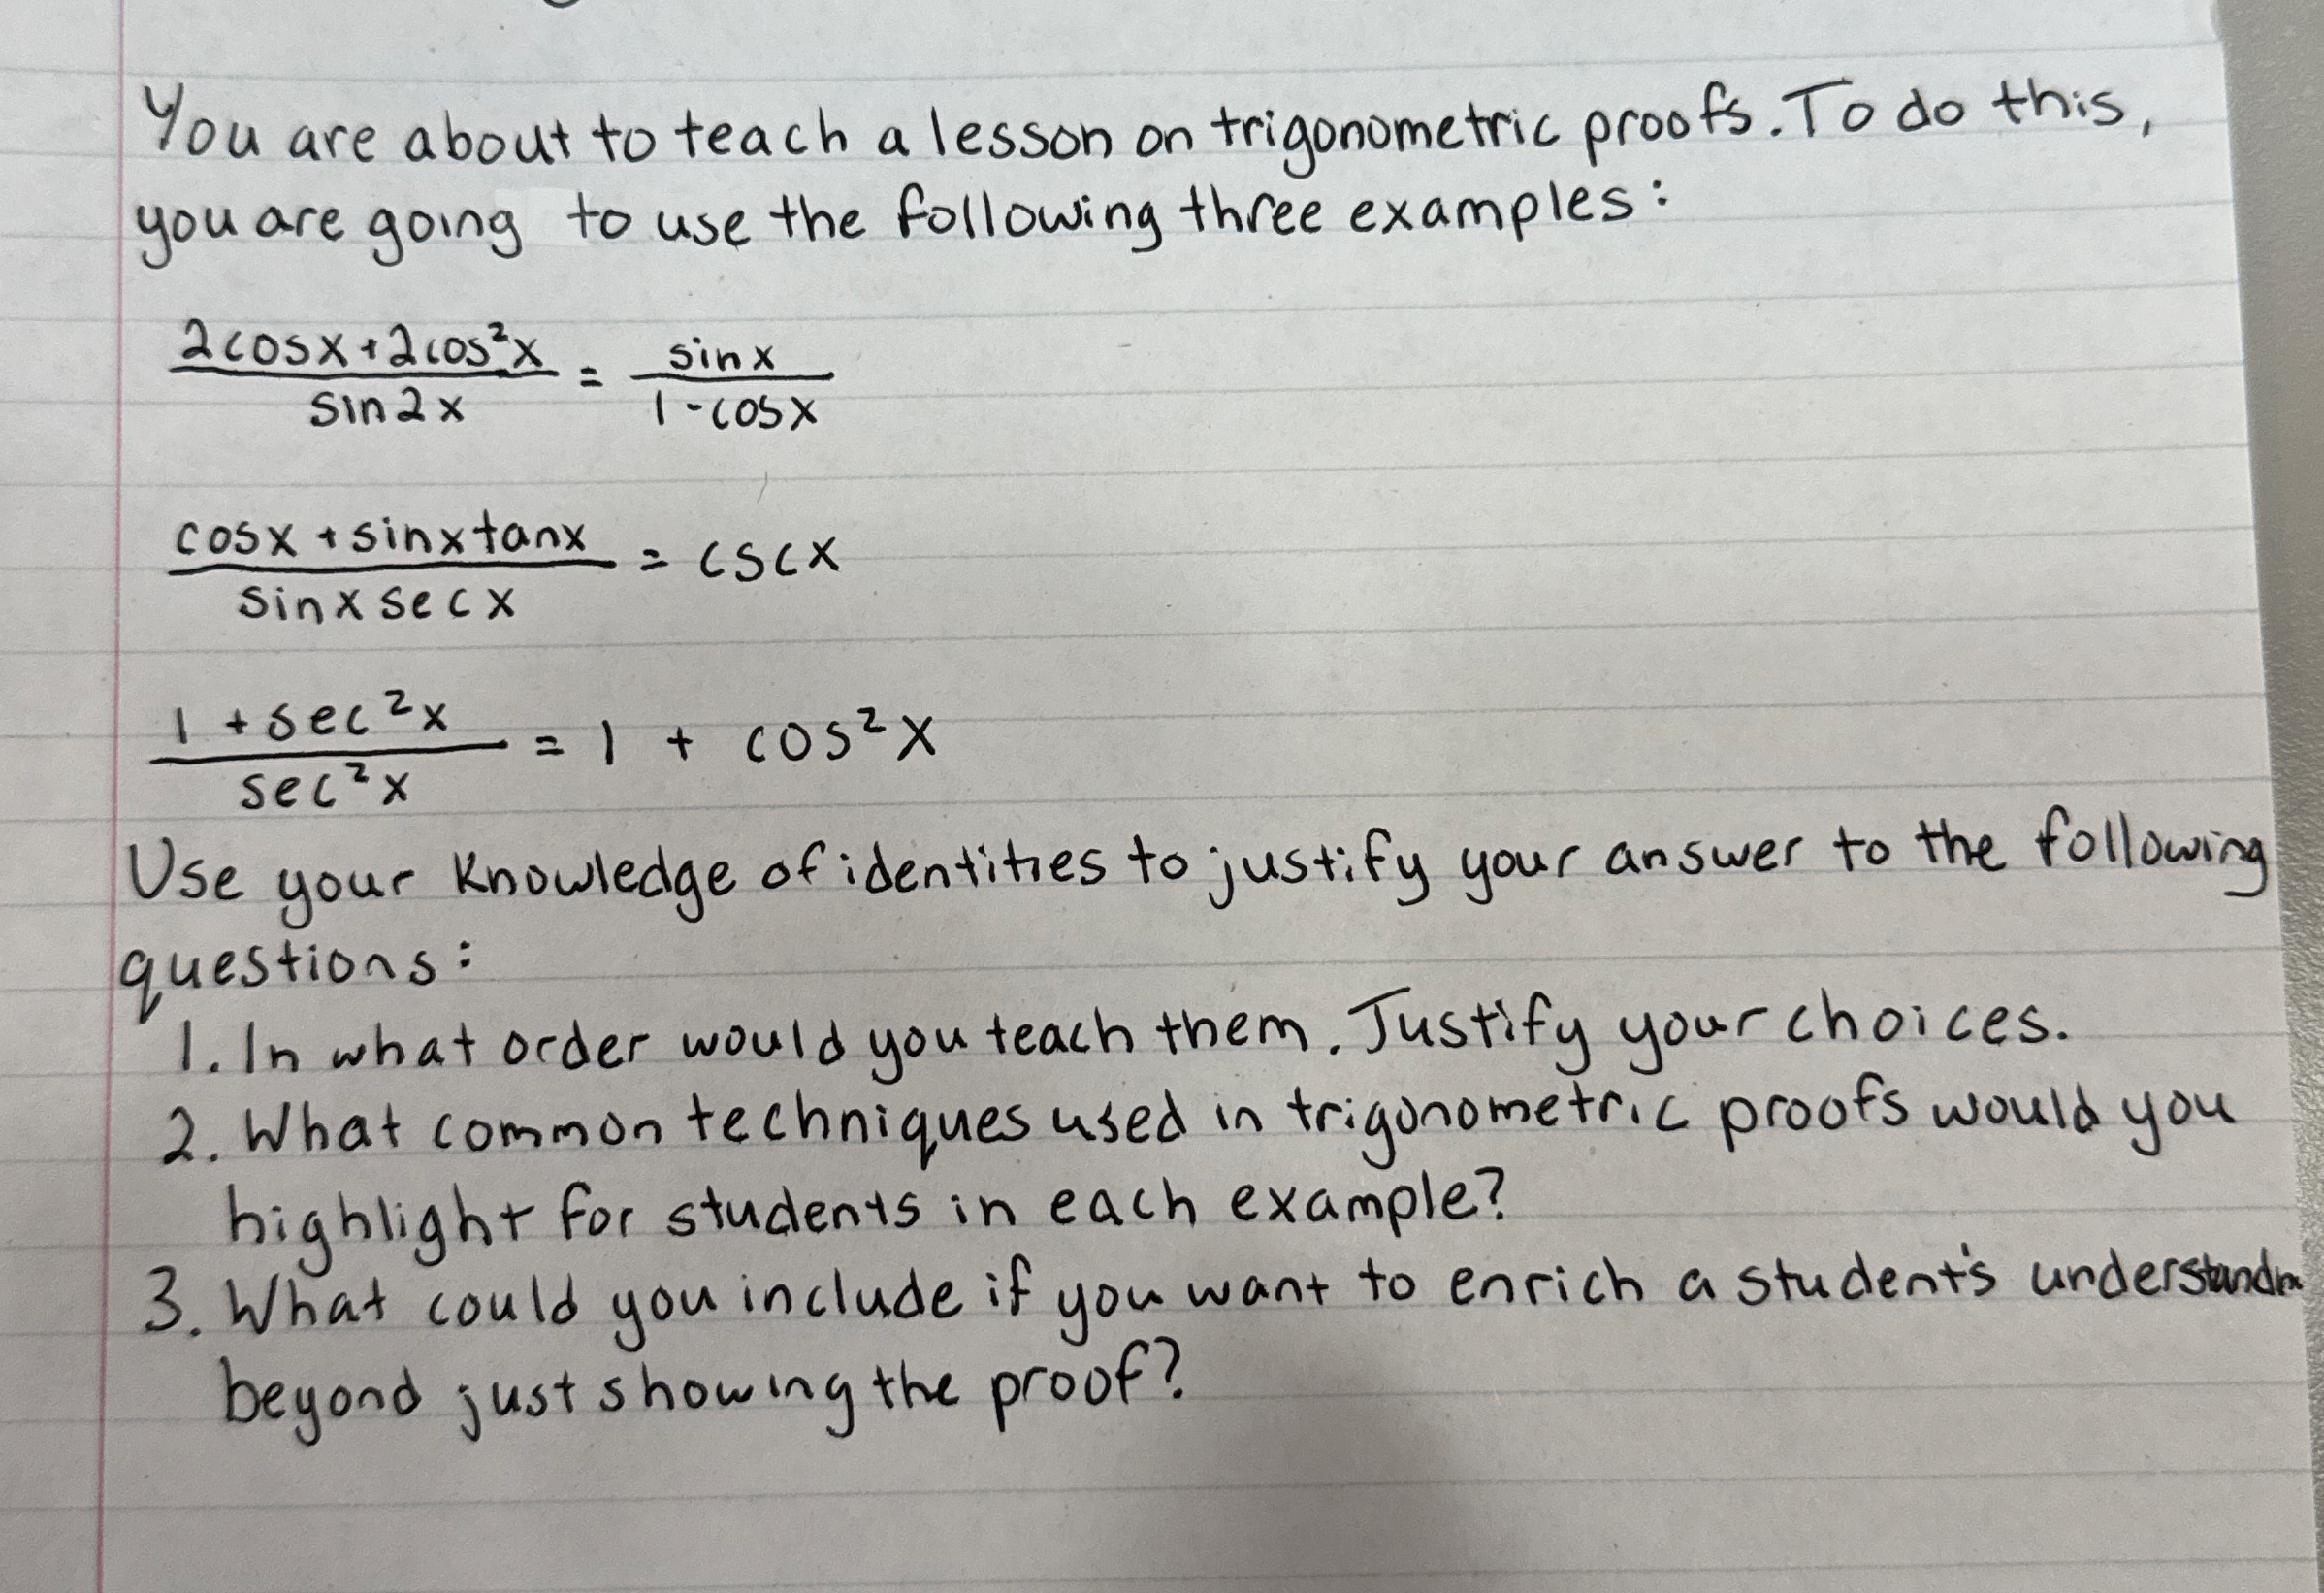 You are about to teach a lesson on trigonometric proofs. To do this,
you are going to use the following three examples:
2cosx+2cos²x / sin2x = sinx / 1-cosx
cosx + sinxtanx / sinx secx = cscx
1 + sec²x / sec²x = 1 + cos²x
Use your knowledge of identities to justify your answer to the following
questions:
1. In what order would you teach them. Justify your choices.
2. What common techniques used in trigonometric proofs would you
highlight for students in each example?
3. What could you include if you want to enrich a student's
beyond just showing the proof?